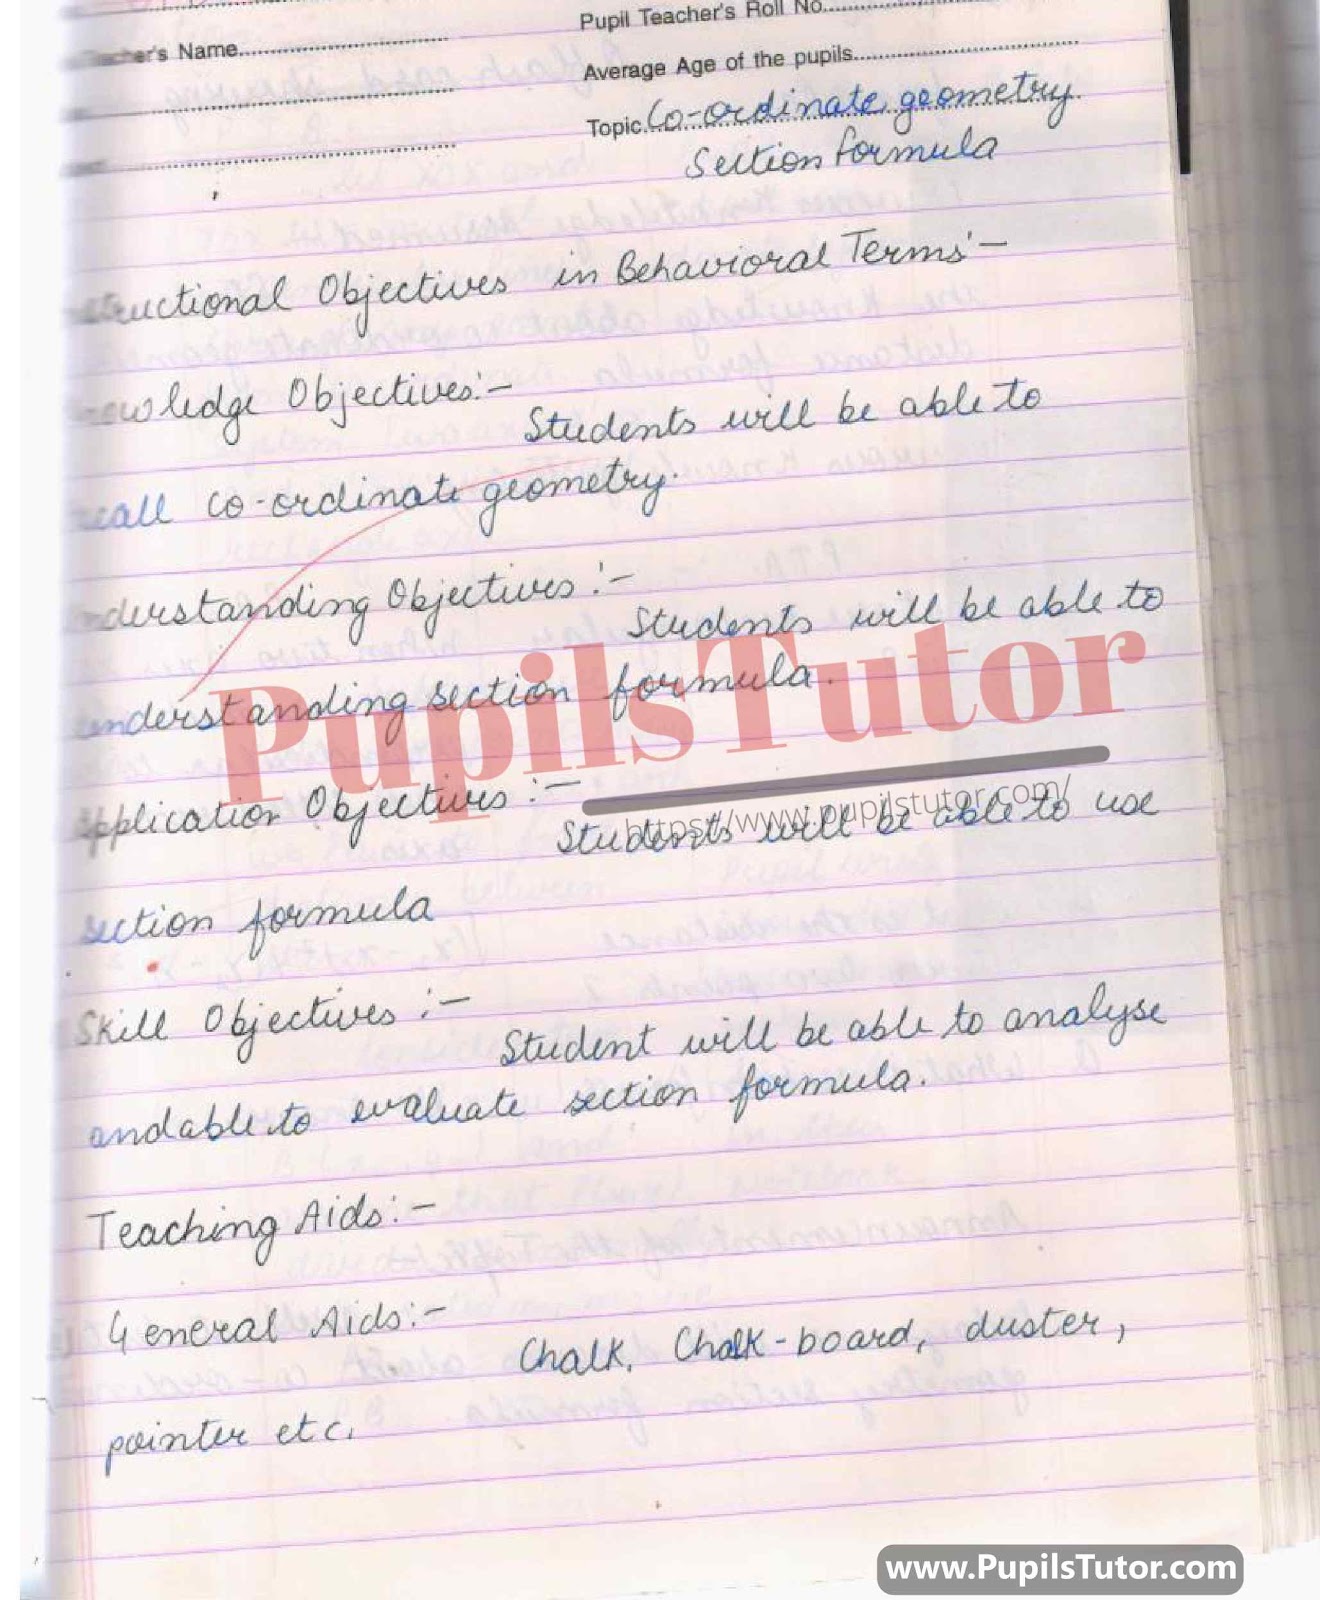 Pupil Teacher's Roll No.
Teacher's Name
Average Age of the pupils
Topic. Co-ordinate geometry
section formula
Instructional Objectives in Behavioral Terms:-
Knowledge Objectives:-
Students will be able to
recall co-ordinate geometry.
Understanding Objectives:-
Students will be able to
understanding section formula.
PupilsTutor
https://www.pupilstutor.com/
Application Objectives:-
Students will be able to use
section formula
Skill Objectives:-
Student will be able to analyse
and able to evaluate section formula.
Teaching Aids:-
General Aids:-
Chalk, Chalk-board, duster,
pointer etc.
www.PupilsTutor.com